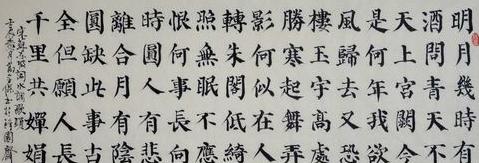 明月幾時有
酒問青天不
天上宮闕今
是何年我欲
風歸去又恐
樓玉宇高處
勝寒起舞弄
影何似在人
轉朱閣低綺
照無眠不應
恨何事長向
時圓人有悲
離合月有陰
圓缺此事古
全但願人長
千里共嬋娟